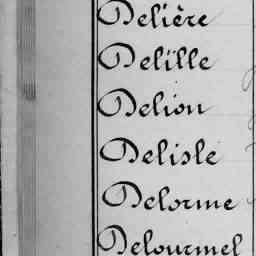 Delière
Delille
Delion
Delisle
Delorme
Delourmel